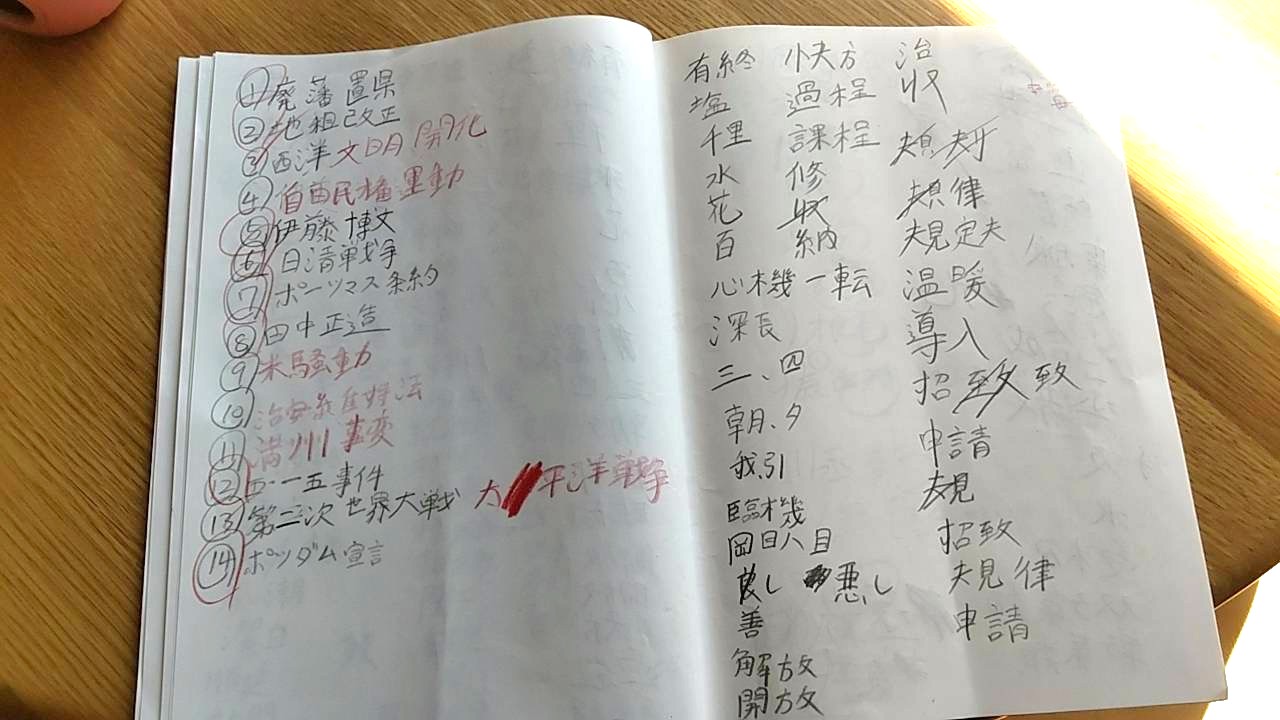 ①廃藩置県
②地租改正
③西洋 文明開化
④自由民権運動
⑤伊藤博文
⑥日清戦争
⑦ポーツマス条約
⑧田中正造
⑨米騒動
⑩治安維持法
⑪満州事変
⑫五・一五事件
⑬第二次世界大戦 太平洋戦争
⑭ポツダム宣言
有終 快方 治
塩 過程 収
千里 課程
水 修 規律
花 収 規定
百 納 温暖
心機一転 導入
深長 招致 致
三、四 申請
朝、夕 規
我引 招致
臨機 規律
岡目八目 申請
良し 悪し
善
解放
開放